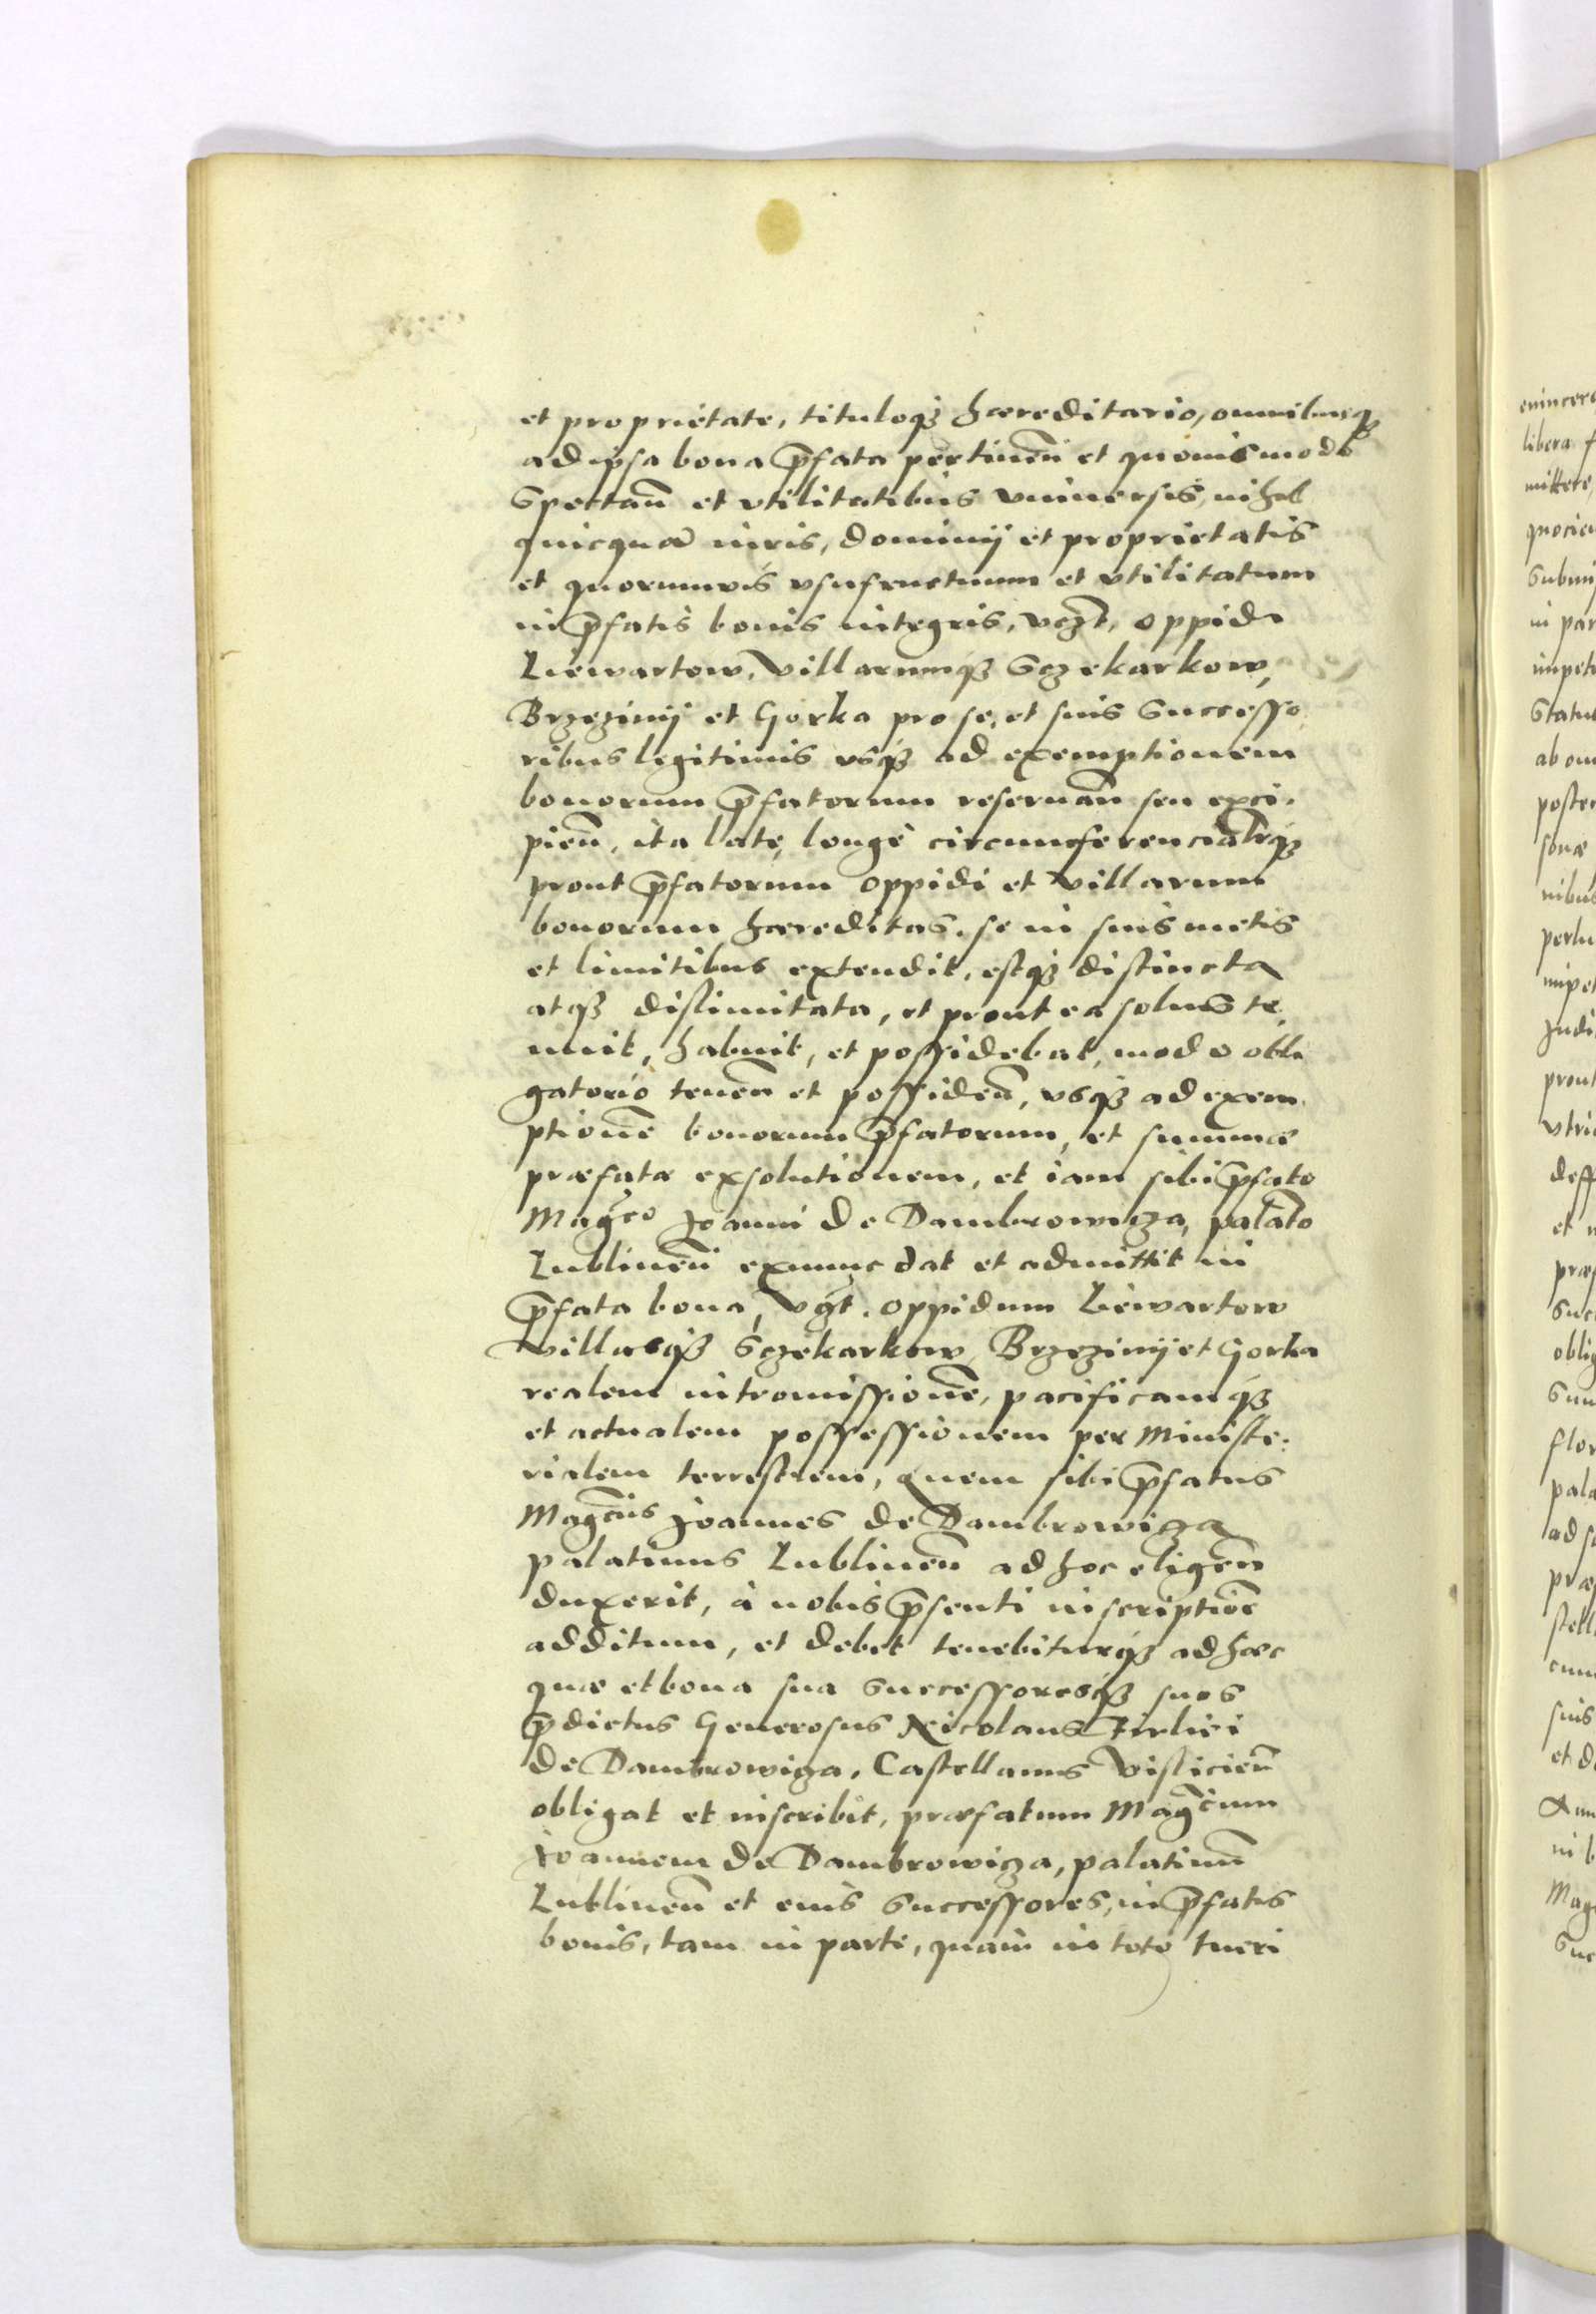 et proprietate, tituloq₃ hæreditario, omnibusq₃
ad ipsa bona p̄fata pertineñ et quouismodo
Spectañ et vtilitatibus vniuersis, nihil
quicquā iuris, dominij et proprietatis
et quorumuis vsufructuum et vtilitatum
in p̄fatis bonis integris, vczt, oppido
Liewartow, Villarumq₃ Sczekarkow,
Brzeziny et Gorka pro se, et suis Successo
ribus legitimis vsq₃ ad exemptionem
bonorum p̄fatorum reseruañ seu exci,
pieñ, ita late, longè circumferencialr̄q₃
prout p̄fatorum oppidi et Villarum
bonorum hæreditas, se in suis metis
et limitibus extendit, estq₃ distincta
atq₃ dislimitata, et prout ea solus te,
nuit, habuit, et possidebat, modo obli
gatorio teneñ et possideñ, vsq₃ ad exem,
ptionē bonorum p̄fatorum, et summæ
præfatæ exsolutionem, et iam sibi p̄fato
Magco Joanni de Dambrowicza, palato
Lublineñ exnunc dat et admittit in
p̄fata bona, vgt. oppidum Liewartow
Villasq₃ Sczekarkow, Brzeziny et Gorka
realem intromissionē, pacificamq₃
et actualem possessionem per Ministe,
rialem terrestrem, quem sibi p̄fatus
Magcus Joannes de Dambrowicza
palatinus Lublineñ ad hoc eligeñ
duxerit, à nobis p̄senti inscriptioē
additum, et debet tenebiturq₃ ad hæc
quæ et bona sua Successoresq₃ suos
p̄dictus Generosus Nicolaus Firliei
de Dambrowicza, Castellanus Visliciеñ
obligat et inscribit, præfatum Magcum
Joannem de Dambrowicza, palatinū
Lublineñ et eius Successores, in p̄fatis
bonis, tam in parte, quàm in toto tueri